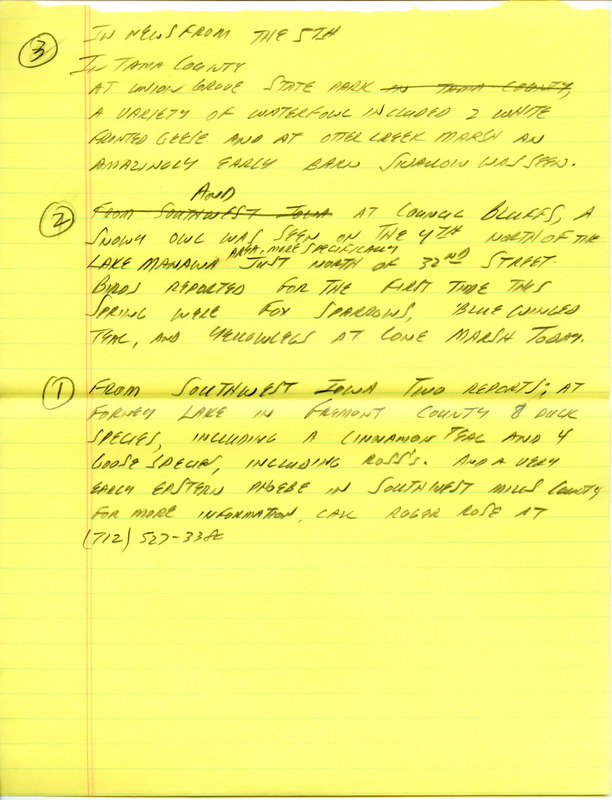 ③ IN NEWS FROM THE 5TH
IN TAMA COUNTY
AT UNION GROVE STATE PARK IN TAMA COUNTY,
A VARIETY OF WATERFOWL INCLUDED 2 WHITE
FRONTED GEESE AND AT OTTER CREEK MARSH AN
AMAZINGLY EARLY BARN SWALLOW WAS SEEN.
AND
② FROM SOUTHWEST IOWA AT COUNCIL BLUFFS, A
SNOWY OWL WAS SEEN ON THE 4TH NORTH OF THE
AREA, MORE SPECIFICALLY
LAKE MANAWA JUST NORTH OF 32ND STREET.
BIRDS REPORTED FOR THE FIRST TIME THIS
SPRING WERE FOX SPARROWS, BLUE WINGED
TEAL, AND YELLOWLEGS AT CONE MARSH TODAY.
① FROM SOUTHWEST IOWA TWO REPORTS; AT
FORNEY LAKE IN FREMONT COUNTY 8 DUCK
SPECIES, INCLUDING A CINNAMON TEAL AND 4
GOOSE SPECIES, INCLUDING ROSS'S. AND A VERY
EARLY EASTERN PHOEBE IN SOUTHWEST MILLS COUNTY
FOR MORE INFORMATION, CALL ROGER ROSE AT
(712) 527-338